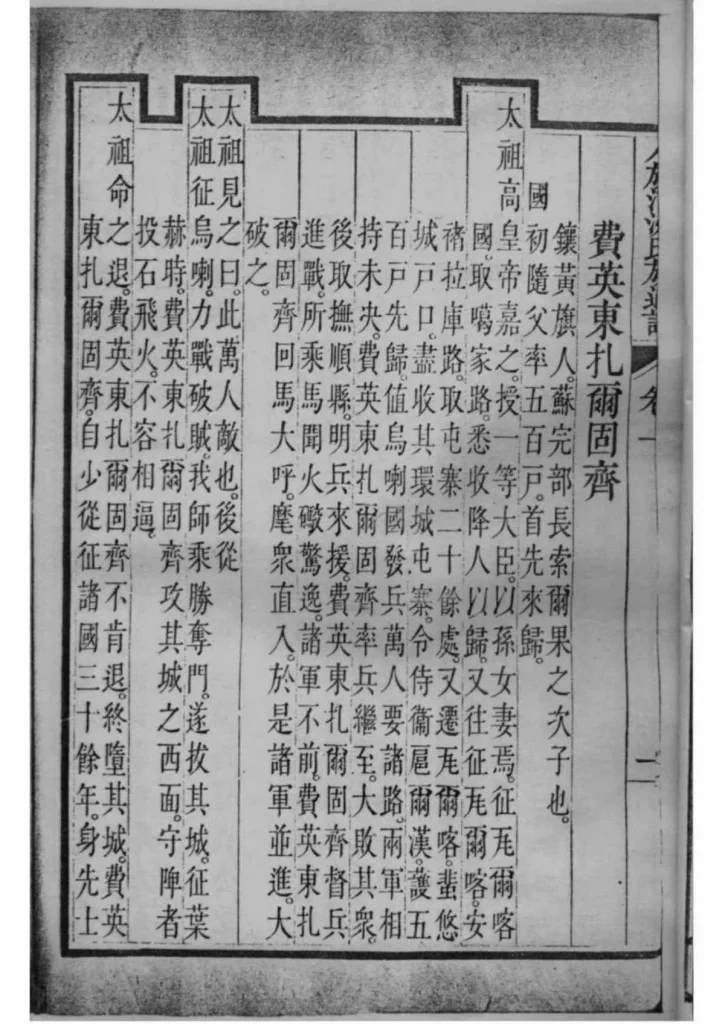 八旗滿洲氏族通譜 卷一 二
費英東扎爾固齊
鑲黃旗人。蘇完部長索爾果之次子也。
國初隨父率五百戶。首先來歸。
太祖高皇帝嘉之。授一等大臣。以孫女妻焉。征瓦爾喀
國。取噶家路。悉收降人以歸。又往征瓦爾喀。安
褚拉庫路。取屯寨二十餘處。又遷瓦爾喀。蜚悠
城戶口。盡收其環城屯寨。令侍衞扈爾漢。護五
百戶先歸。值烏喇國發兵萬人要諸路。兩軍相
持未决。費英東扎爾固齊率兵繼至。大敗其衆。
後取撫順縣。明兵來援。費英東扎爾固齊督兵
進戰。所乘馬聞火礮驚逸。諸軍不前。費英東扎
爾固齊回馬大呼。麾衆直入。於是諸軍並進。大
破之。
太祖見之曰。此萬人敵也。後從
太祖征烏喇。力戰破賊。我師乘勝奪門。遂拔其城。征葉
赫時。費英東扎爾固齊攻其城之西面。守陴者
投石飛火。不容相逼。
太祖命之退。費英東扎爾固齊不肯退。終墮其城。費英
東扎爾固齊。自少從征諸國三十餘年。身先士